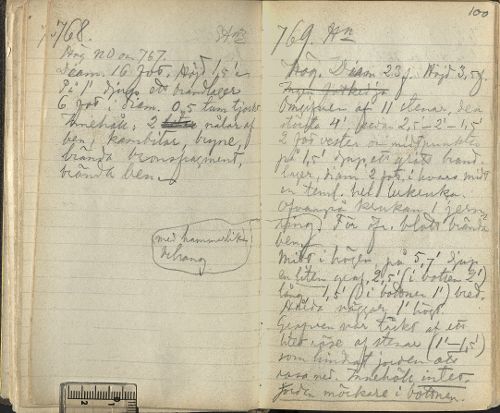 768.
Hög NO om 767.
Diam. 16 fot. Höjd 1,5'
På 1' djup ett brandlager
6 fot i diam. 0,5 tum tjockt
Innehåll: 2 nålar af
ben, kambitar, bryne,
brända bronsfragment,
brända ben.
med hammarlika
100
769. Hn
Hög. Diam 23 f. Höjd 3,5 f.
Omgifven af 11 stenar, den
största 4' 2,5' – 2' – 1,5'
2 fot vester om midtpunkten
på 1,5' djup, ett brand-
lager, diam 2 fot, i hvars midt
en teml. hel lerkruka.
Ofvanpå krukan 1 jern-
ring. För öfr. blott brända
ben.
Midt i högen på 5-7' djup
en liten graf, 2,5' (i botten 2')
lång, 1,5' (i bottnen 1') bred.
väggar 1' högt.
Grafven var täckt af ett
litet röse af stenar (1'–1,5')
som hindrat jorden att
rasa ned. Innehöll intet.
Jorden mörkare i bottnen.